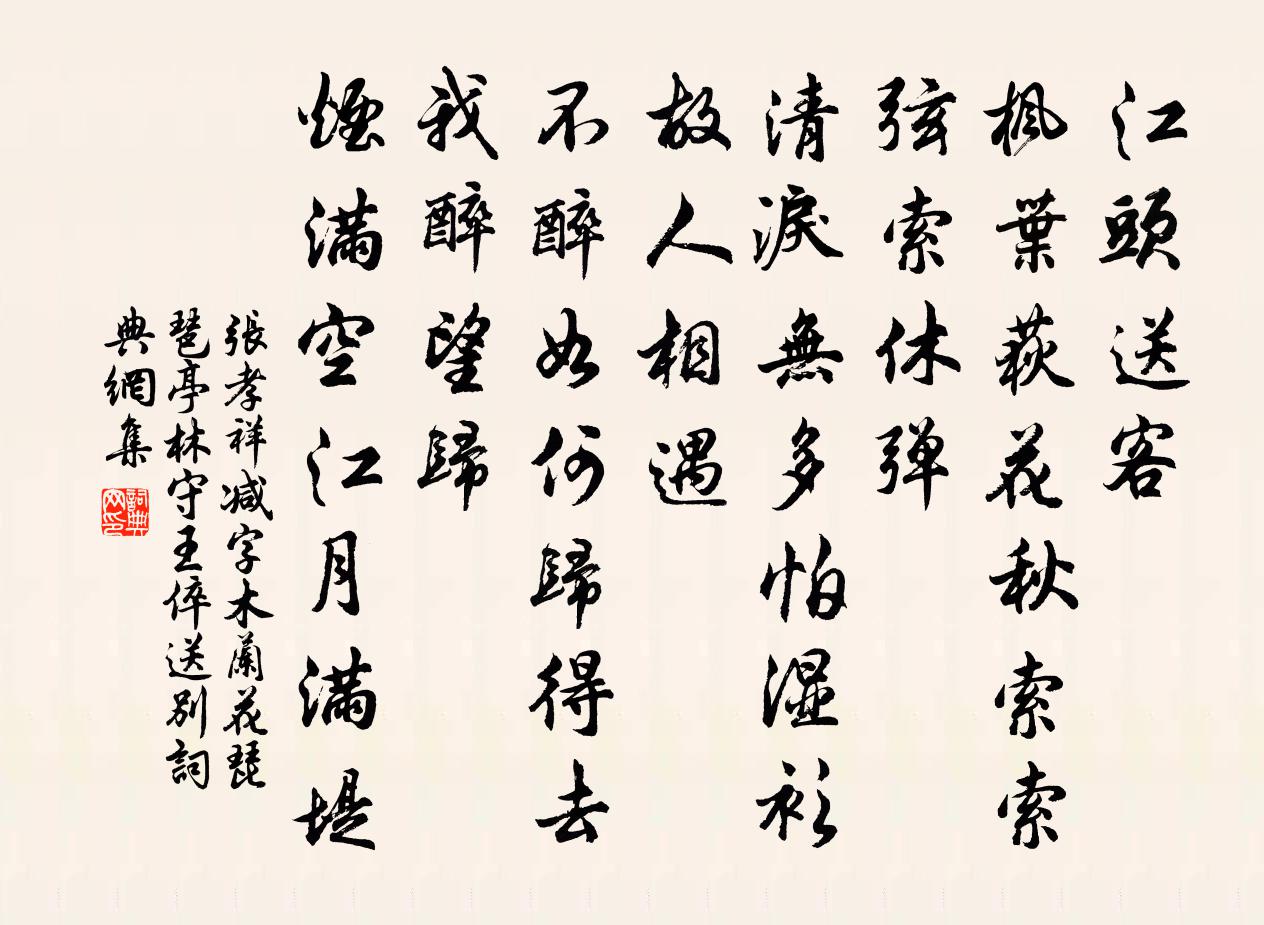 江頭送客
楓葉荻花秋索索
弦索休弹
清淚無多怕濕衫
故人相遇
不醉如何歸得去
我醉望歸
煙滿空江月滿堤
張孝祥减字木蘭花琵
琶亭林守王倅送别詞
典網集
詞典网印